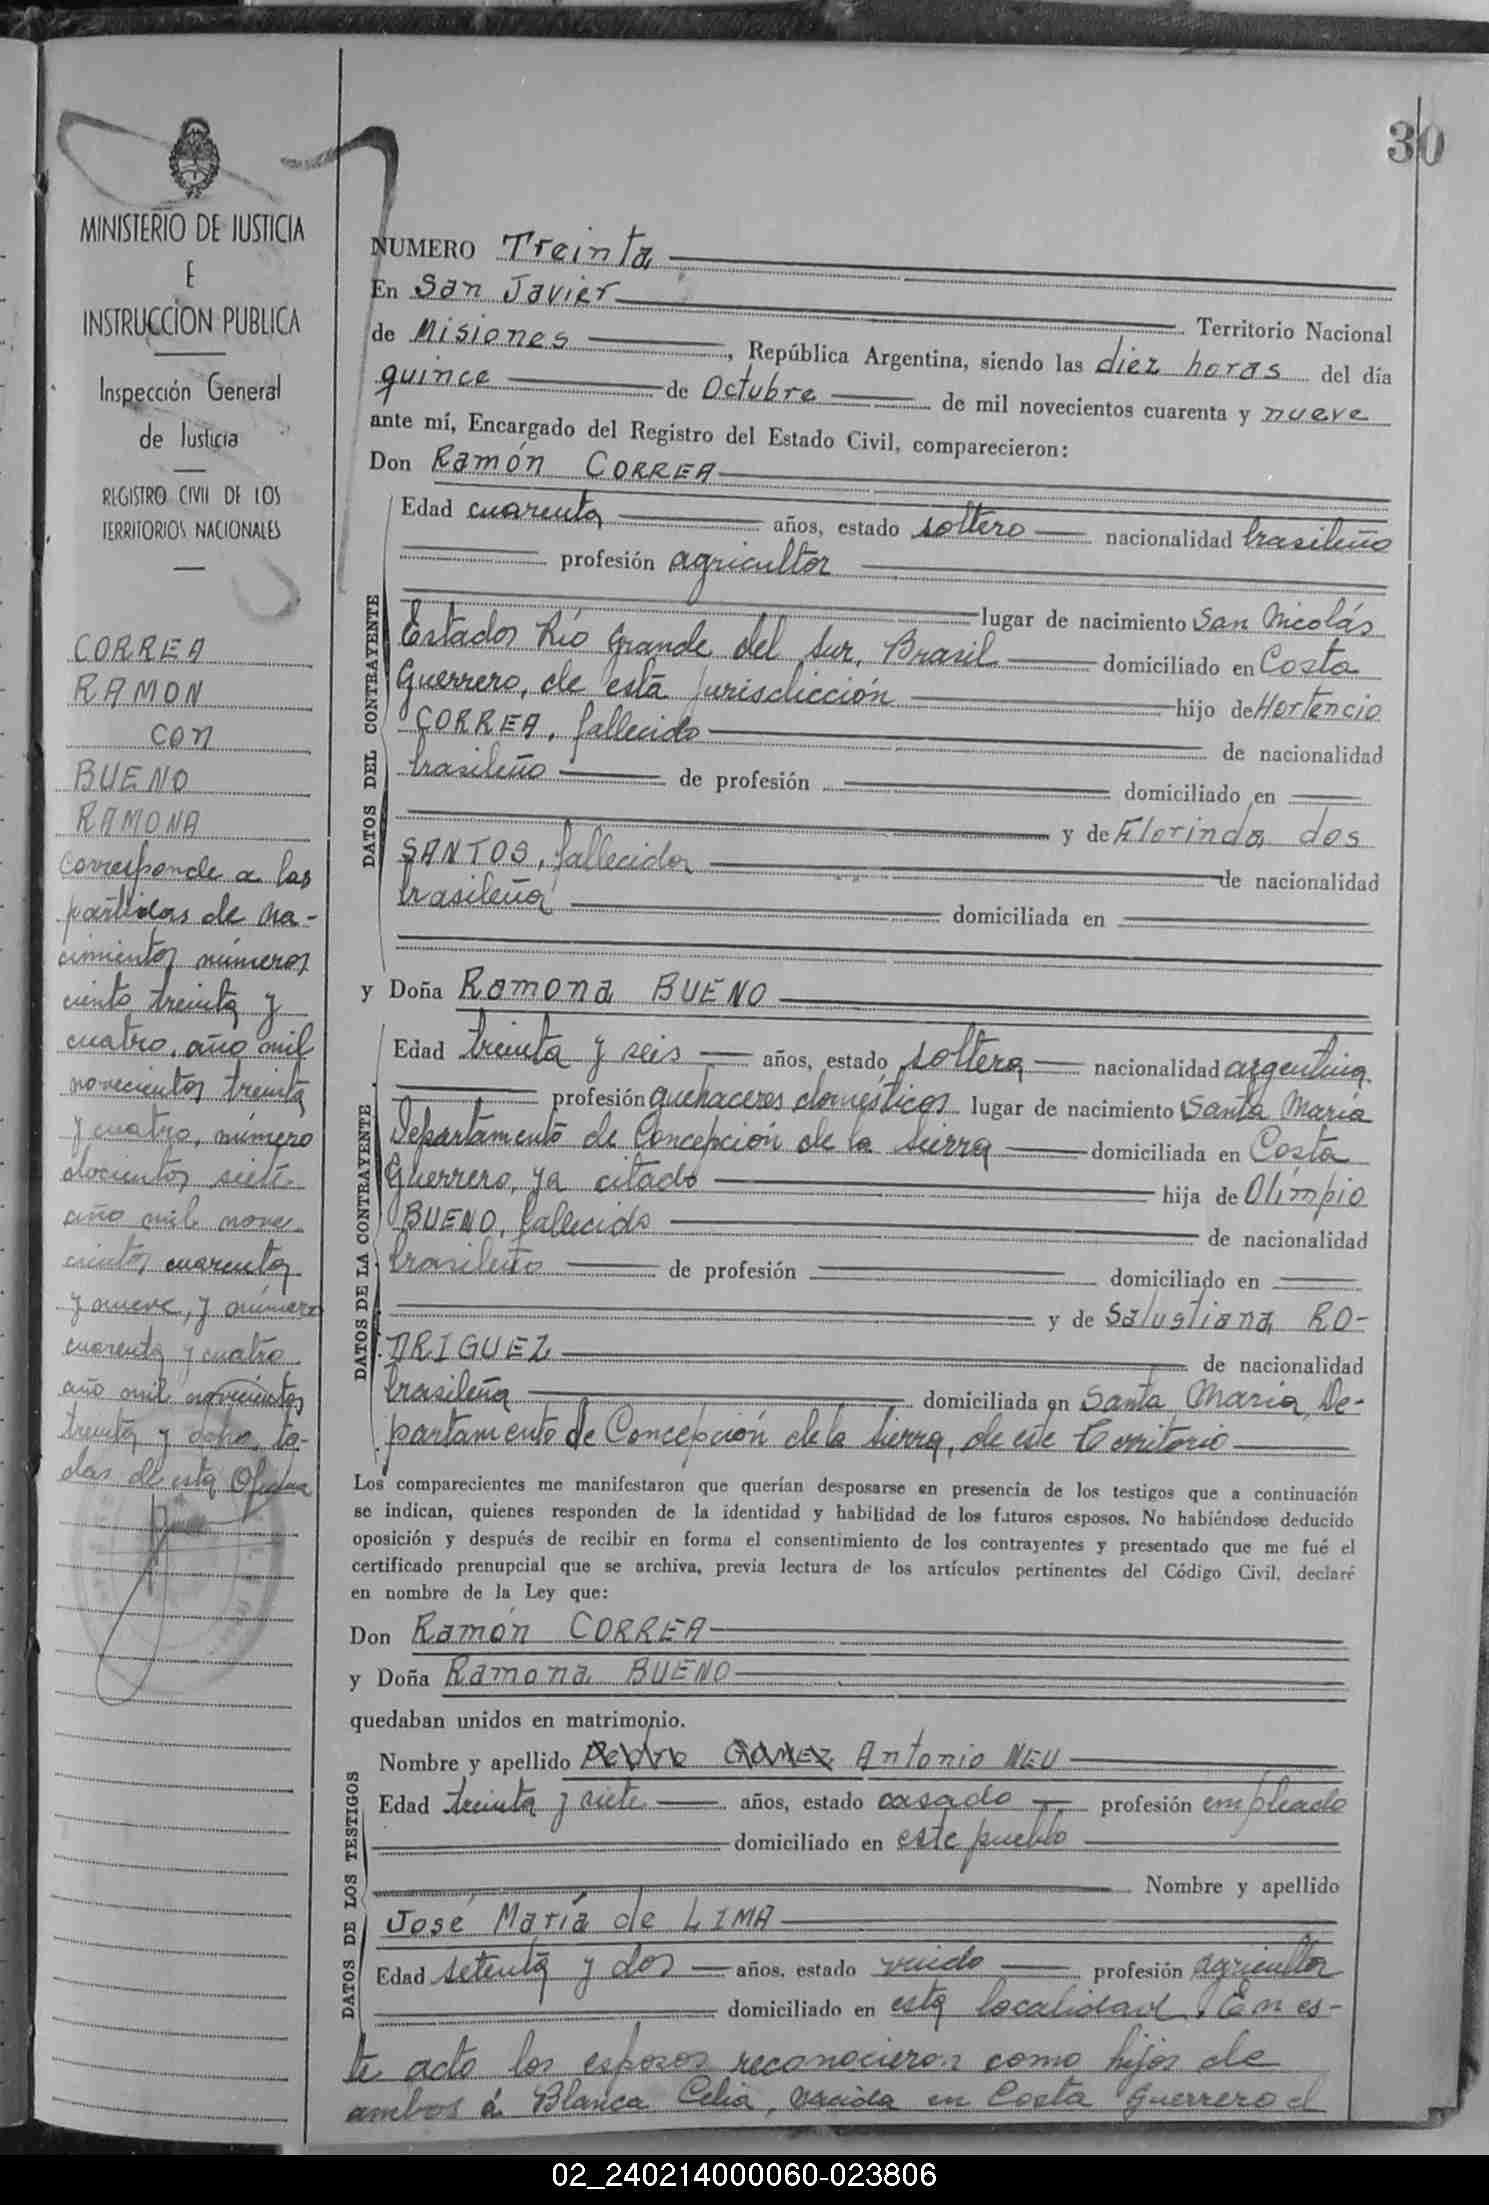 30
MINISTERIO DE JUSTICIA
E
INSTRUCCION PUBLICA
Inspección General
de Justicia
REGISTRO CIVIL DE LOS
TERRITORIOS NACIONALES
CORREA
RAMON
con
BUENO
RAMONA
Corresponde a las
partidas de na-
cimientos números
ciento treinta y
cuatro, año mil
novecientos treinta
y cuatro, número
docientos siete
año mil nove
cientos cuarenta
y nueve, y número
cuarenta y cuatro
año mil novecientos
treinta y ocho, to-
das de esta Oficina
NUMERO Treinta
En San Javier Territorio Nacional
de Misiones, República Argentina, siendo las diez horas del día
quince de Octubre de mil novecientos cuarenta y nueve
ante mí, Encargado del Registro del Estado Civil, comparecieron:
Don Ramón CORREA
DATOS DEL CONTRAYENTE
Edad cuarenta años, estado soltero nacionalidad brasileño
profesión agricultor
lugar de nacimiento San Nicolás
Estados Río Grande del Sur, Brasil domiciliado en Costa
Guerrero, de esta jurisdicción hijo de Hortencio
CORREA, fallecido de nacionalidad
brasileño de profesión domiciliado en
y de Florinda dos
SANTOS, fallecida de nacionalidad
brasileña domiciliada en
y Doña Ramona BUENO
DATOS DE LA CONTRAYENTE
Edad treinta y seis años, estado soltera nacionalidad argentina
profesión quehaceres domésticos lugar de nacimiento Santa María
Departamento de Concepción de la Sierra domiciliada en Costa
Guerrero, ya citado hija de Olímpio
BUENO, fallecido de nacionalidad
brasileño de profesión domiciliado en
y de Salustiana RO-
DRIGUEZ de nacionalidad
brasileña domiciliada en Santa María, De-
partamento de Concepción de la Sierra, de este Territorio
Los comparecientes me manifestaron que querían desposarse en presencia de los testigos que a continuación
se indican, quienes responden de la identidad y habilidad de los futuros esposos. No habiéndose deducido
oposición y después de recibir en forma el consentimiento de los contrayentes y presentado que me fué el
certificado prenupcial que se archiva, previa lectura de los artículos pertinentes del Código Civil, declaré
en nombre de la Ley que:
Don Ramón CORREA
y Doña Ramona BUENO
quedaban unidos en matrimonio.
DATOS DE LOS TESTIGOS
Nombre y apellido Pedro GOMEZ Antonio NEU
Edad treinta y siete años, estado casado profesión empleado
domiciliado en este pueblo
Nombre y apellido
José María de LIMA
Edad setenta y dos años, estado viudo profesión agricultor
domiciliado en esta localidad. En es-
te acto los esposos reconocieron como hijos de
ambos á Blanca Celia, nacida en Costa Guerrero el
02_240214000060-023806